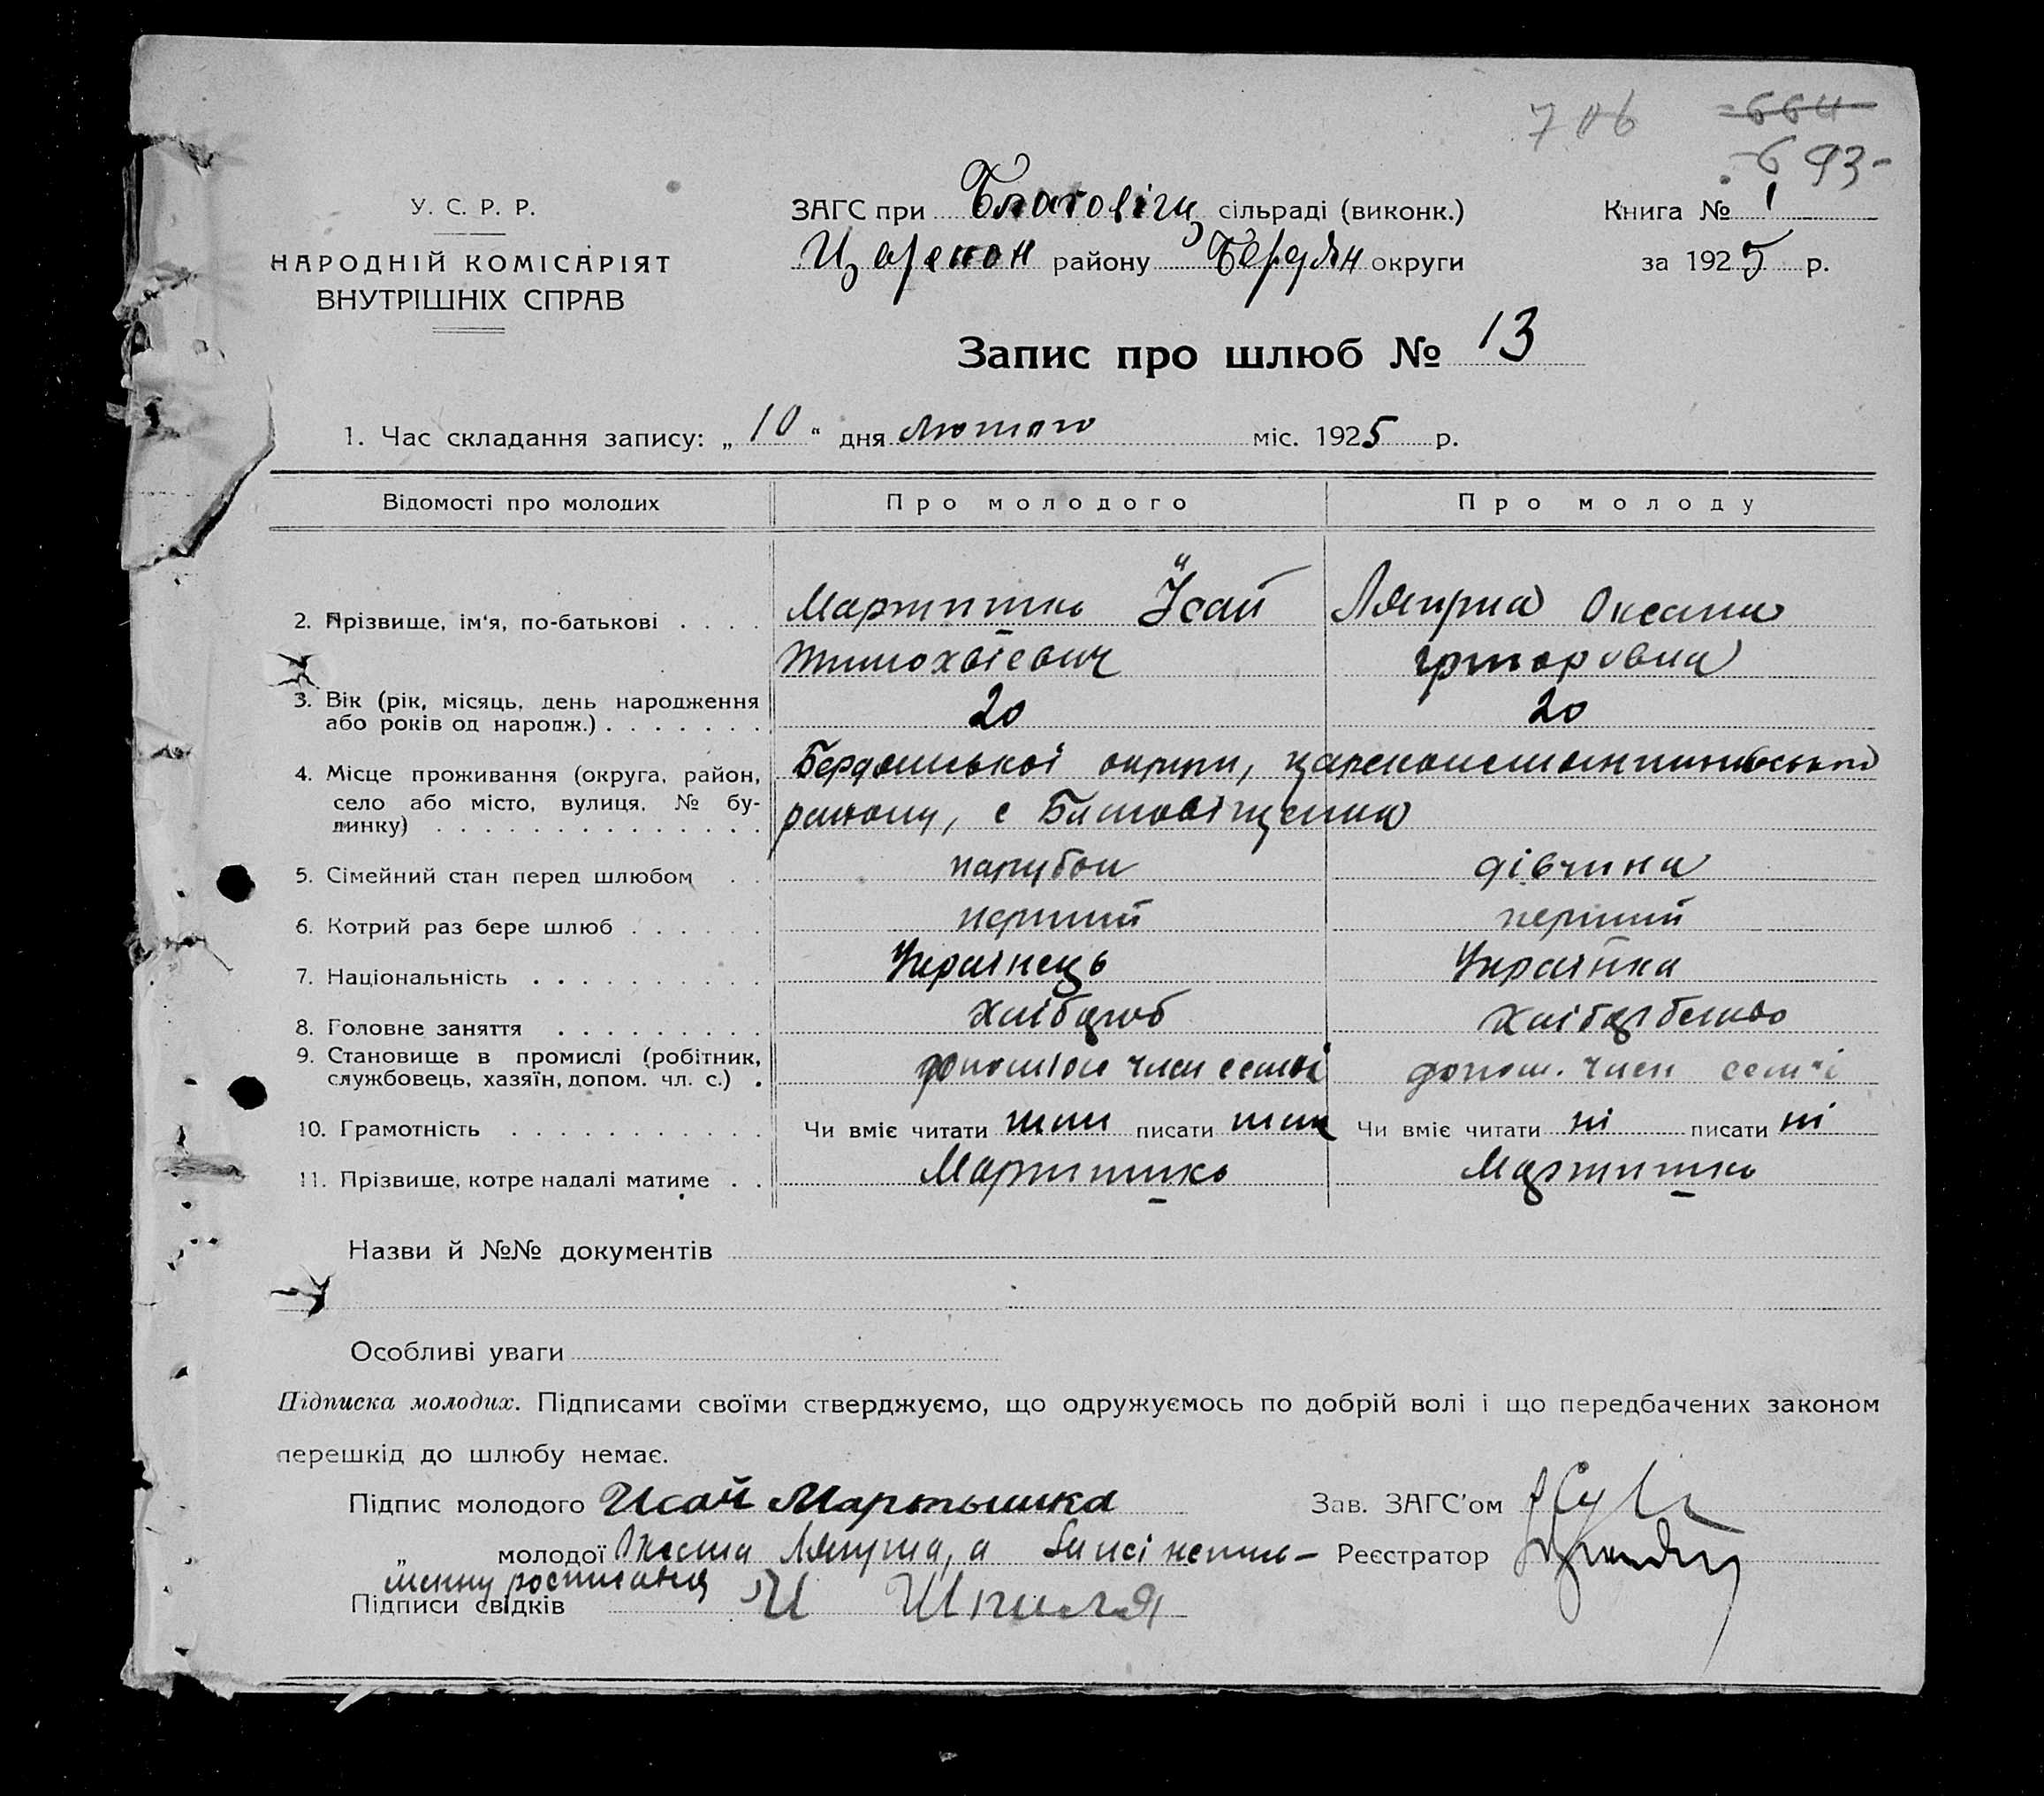 706 664
693-
У. С. Р. Р.
НАРОДНІЙ КОМІСАРІЯТ
ВНУТРІШНІХ СПРАВ
ЗАГС при Благовіщ сільраді (виконк.)
Царекон району Бердян округи
Книга № 1
за 1925 р.
Запис про шлюб № 13
1. Час складання запису: „10“ дня лютого міс. 1925 р.
Відомості про молодих Про молодого Про молоду
2. Прізвище, ім'я, по-батькові . . . . Мартишко Ісай Оксана
Тимохвієвич Григоровна
3. Вік (рік, місяць, день народження
або років од народж.) . . . . . . . 20 20
4. Місце проживання (округа, район, Бердянської округи, Царекон
село або місто, вулиця, № бу-
динку) . . . . . . . . . . . . . . району, с Благовіщенка
5. Сімейний стан перед шлюбом . . парубок дівчина
6. Котрий раз бере шлюб . . . . . . перший перший
7. Національність . . . . . . . . . . Українець Українка
8. Головне заняття . . . . . . . . . Хлібороб Хліборобство
9. Становище в промислі (робітник,
службовець, хазяїн, допом. чл. с.) . член семьі допом. член семьі
10. Грамотність . . . . . . . . . . . Чи вміє читати так писати так Чи вміє читати ні писати ні
11. Прізвище, котре надалі матиме . . Мартишко Мартишко
Назви й №№ документів
Особливі уваги
Підписка молодих. Підписами своїми стверджуємо, що одружуємось по добрій волі і що передбачених законом
перешкід до шлюбу немає.
Підпис молодого Исай Мартышка Зав. ЗАГС'ом
„ молодої Оксана а неписьменну Реєстратор
Підписи свідків